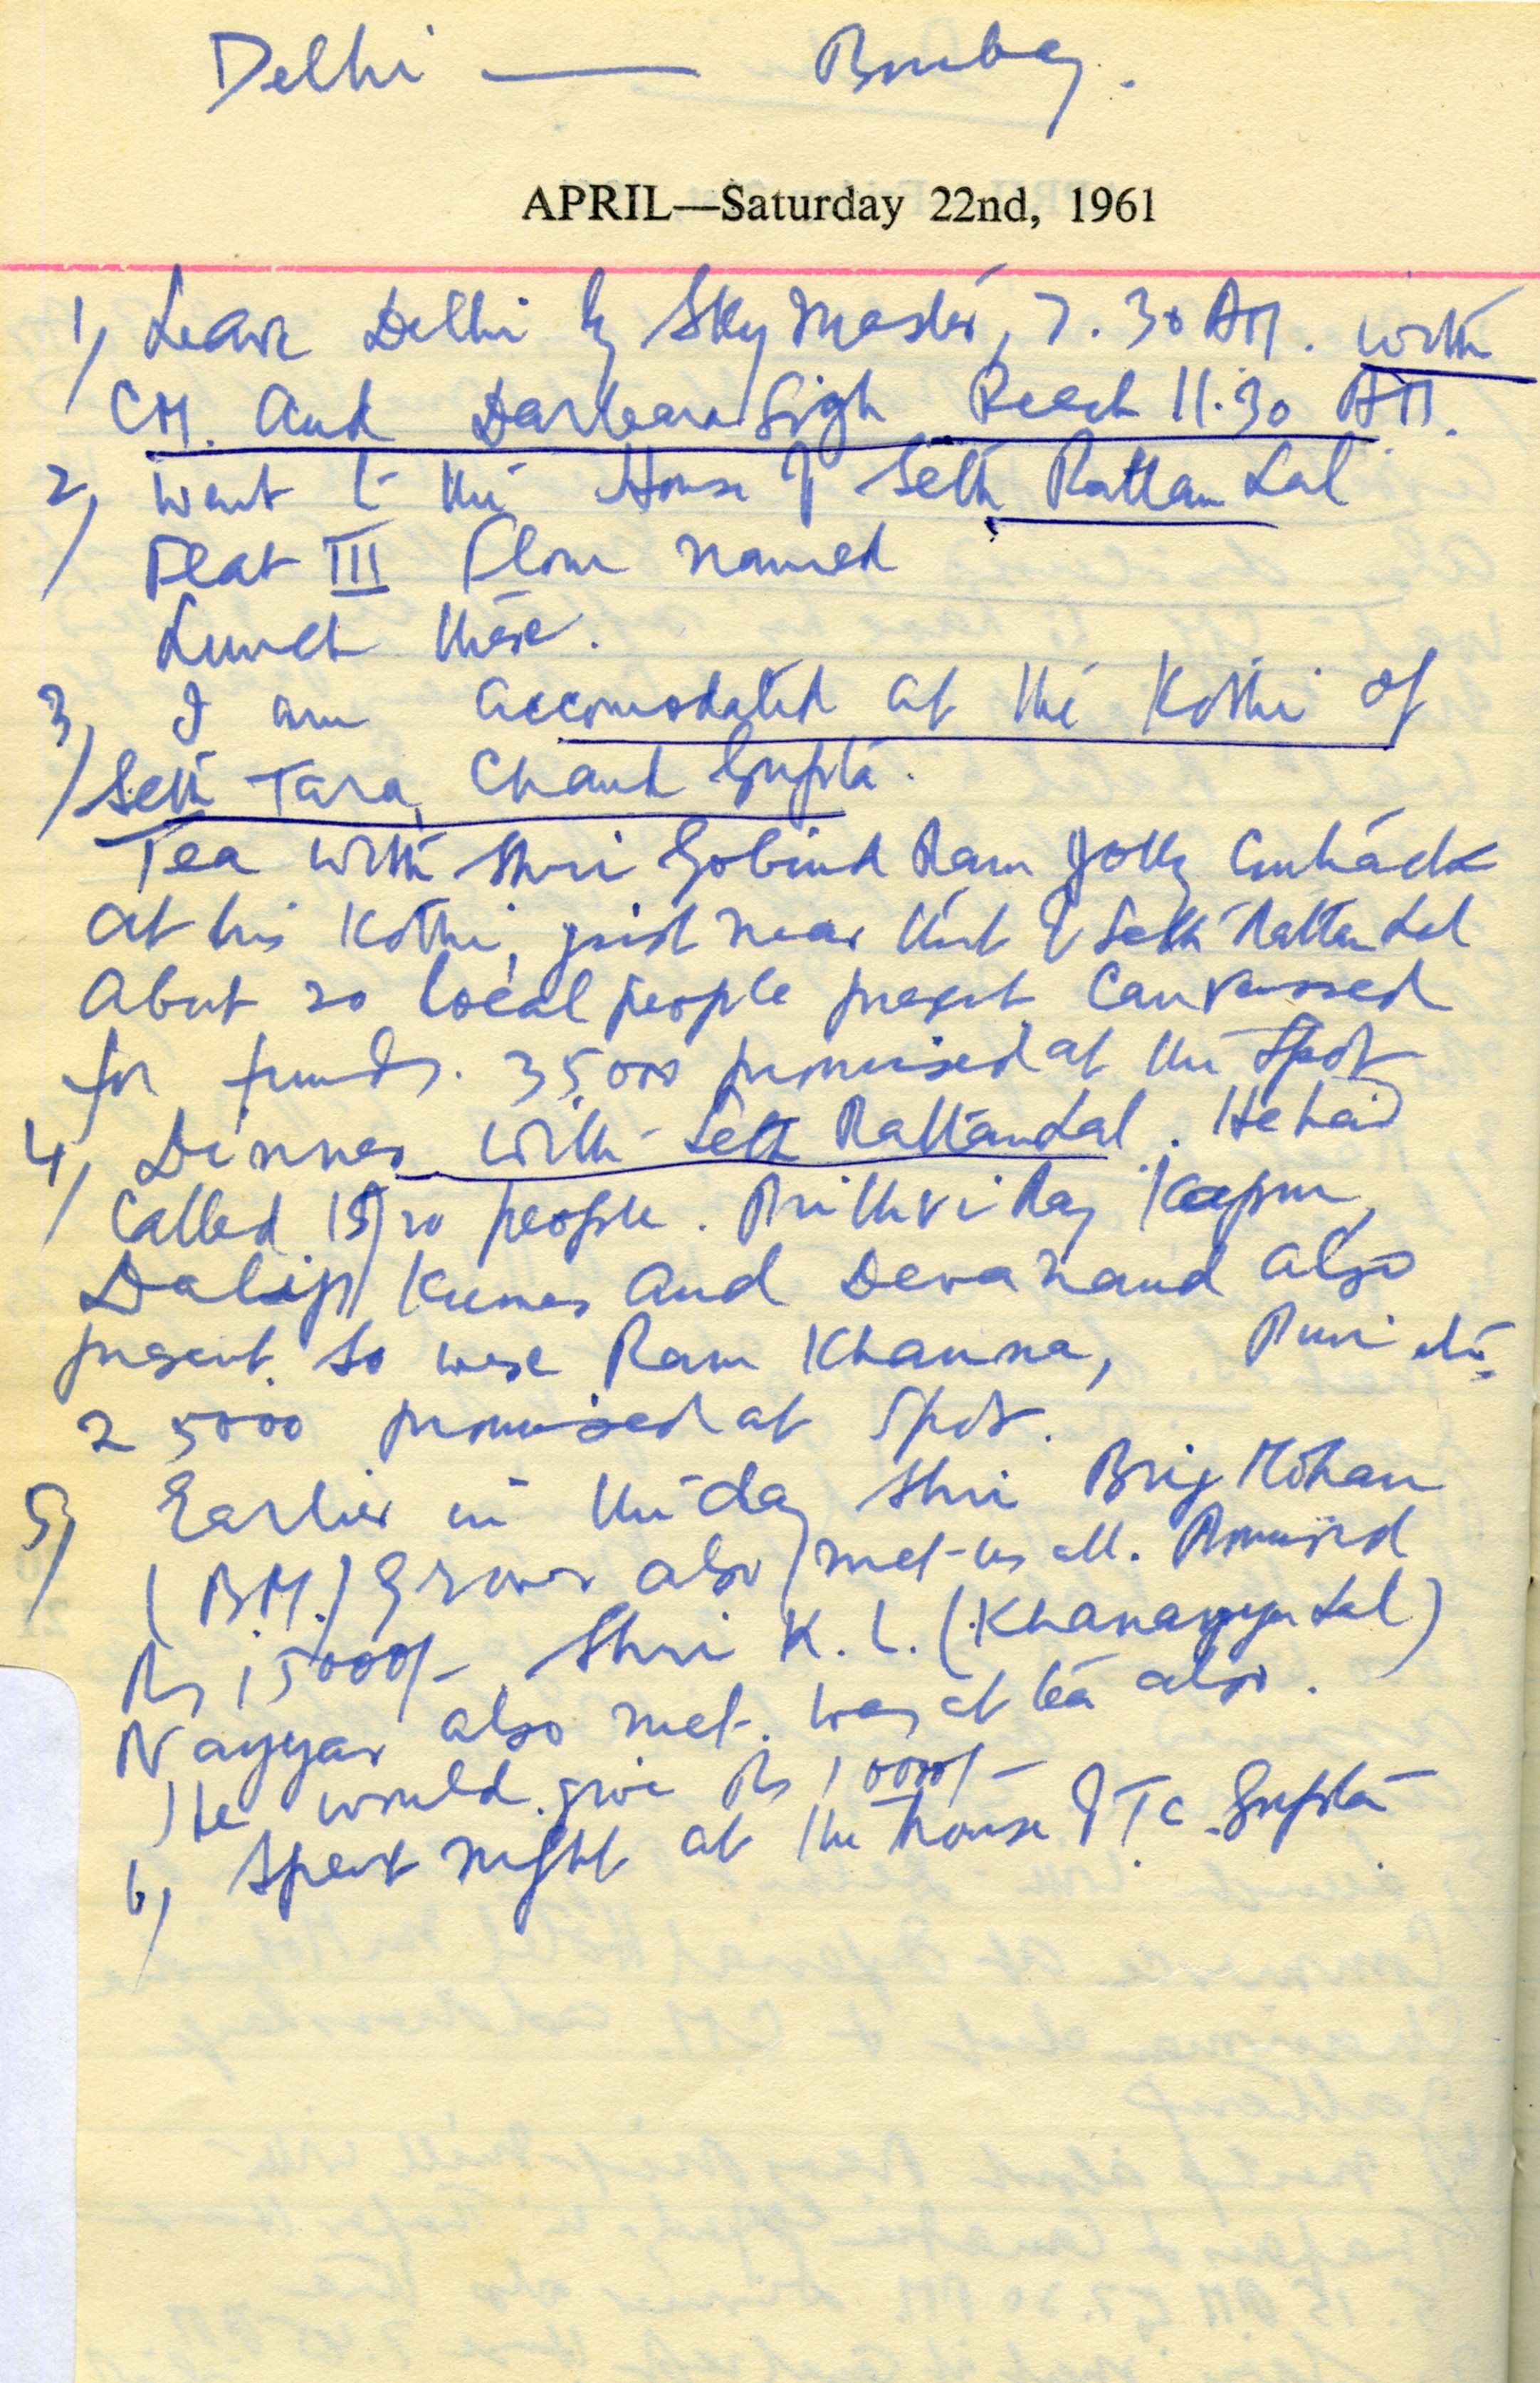 Delhi — Bombay.
APRIL—Saturday 22nd, 1961
1) Leave Delhi by Sky Master, 7.30 AM. with
CM. and Darbara Sigh Reach 11.30 AM.
2) Went to the House of Seth Rattan Lal
Flat III Floor named
Lunch there.
3) I am accomodated at the Kothi of
Seth Tara Chand Gupta.
Tea with Shri Gobind Ram Jolly
at his Kothi, just near that of Seth Rattan Lal
About 20 local people present Canvassed
for funds. 35000 promised at the Spot
4) Dinner with Seth Rattan Lal. He had
called 15/20 people. Prithvi Raj Kapur,
Dalip Kumar and Devanand also
present. So were Ram Khanna, Puri etc.
25000 promised at Spot.
5) Earlier in the day Shri Brij Mohan
(B.M.) Grover also met us all. Promised
Rs 15000/- Shri K. L. (Khanayya Lal)
Nayyar also met. Was at tea also.
He would give Rs 10000/-
6) Spent night at the house of T C Gupta